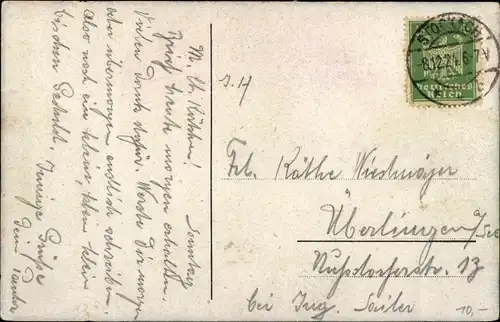 M. lb. Käthen! Sonntag
Brief heute morgen erhalten.
Vielen Dank dafür. Werde Dir morgen
oder übermorgen endlich schreiben.
Also noch ein klein, klein klein
bischen Geduld. Innige Grüße
Dein
J. H
STOCKACH
8.12.24. 6-7 V
Deutsches
Reich
Frl. Käthe Wiestmäyer
Überlingen/See
Nußdorferstr. 13
bei Ing. Seiler
10,-